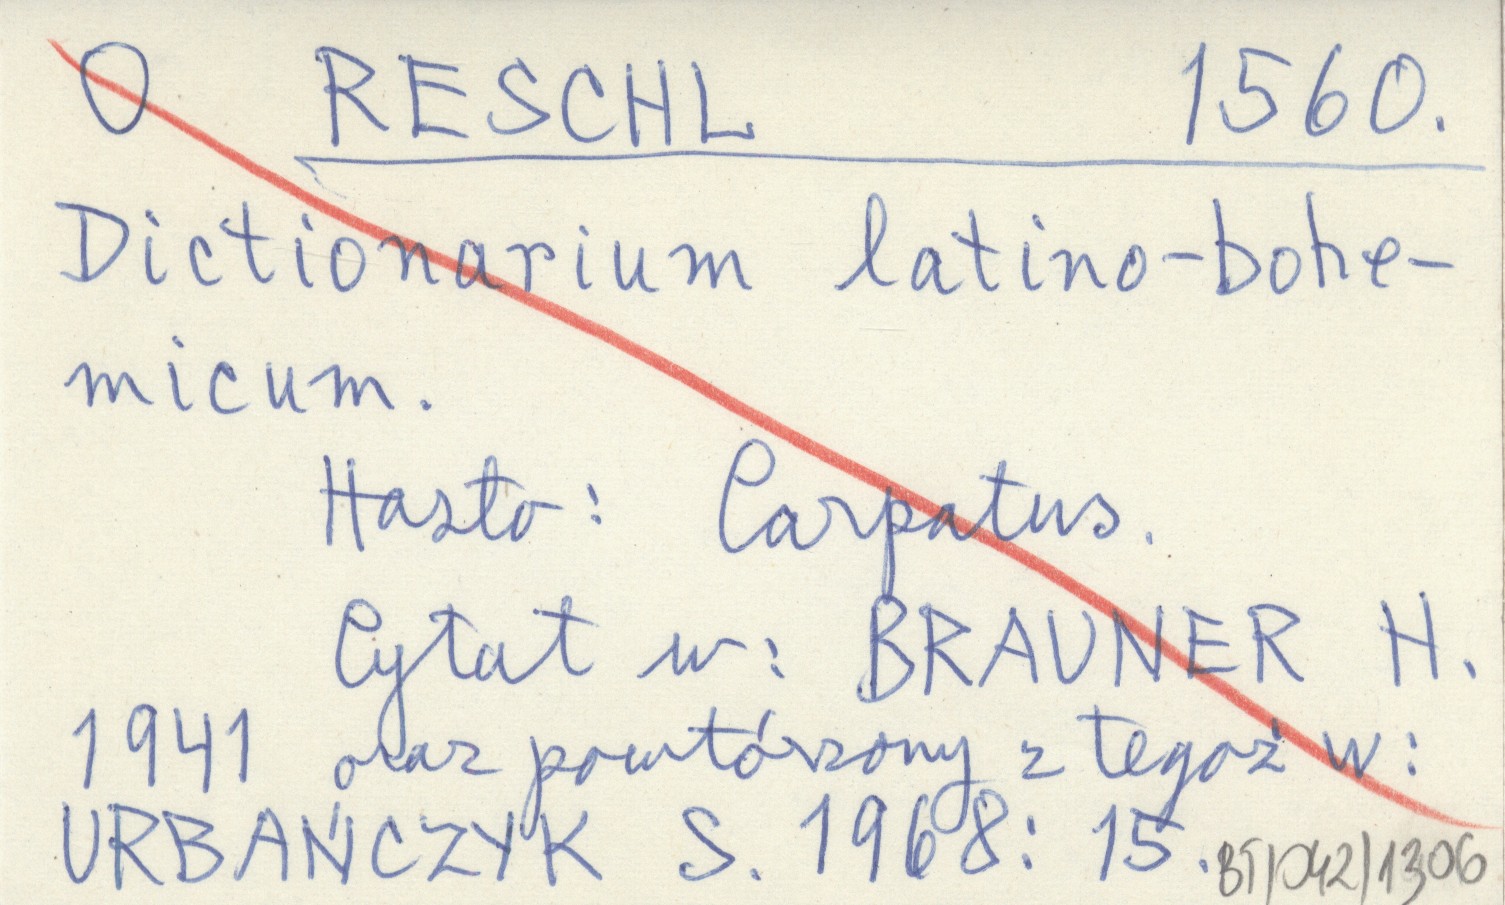 O RESCHL 1560.
Dictionarium latino-bohe-
micum.
Hasło: Carpatus.
Cytat w: BRAUNER H.
1941 oraz powtórzony z tegoż w:
URBAŃCZYK S. 1968: 15.
BT/042/1306